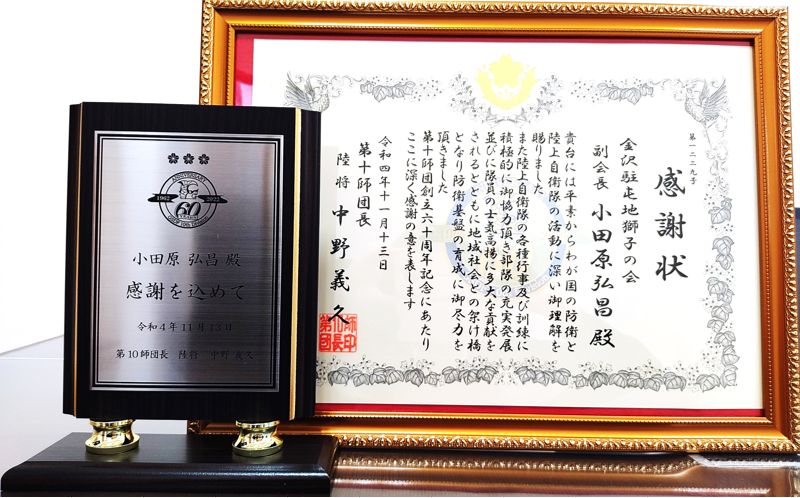 1962
ANNIVERSARY
60
2022
小田原 弘昌 殿
感謝を込めて
令和4年11月13日
第10師団長 陸将 中野 義久
第一二二九号
感謝状
金沢駐屯地獅子の会
副会長 小田原弘昌 殿
貴台には平素からわが国の防衛と
陸上自衛隊の活動に深い御理解を
賜りました
また陸上自衛隊の各種行事及び訓練に
積極的に御協力頂き部隊の充実発展
並びに隊員の士気高揚に多大な貢献を
されるとともに地域社会との架け橋
となり防衛基盤の育成に御尽力を
頂きました
第十師団創立六十周年記念にあたり
ここに深く感謝の意を表します
令和四年十一月十三日
第十師団長
陸将 中野義久
第10師
団長印